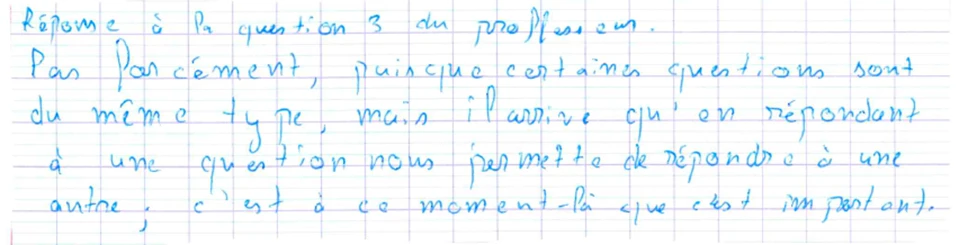 Réponse à la question 3 du professeur.
Pas forcément, puisque certaines questions sont
du même type, mais il arrive qu'en répondant
à une question nous permette de répondre à une
autre ; c'est à ce moment-là que c'est important.